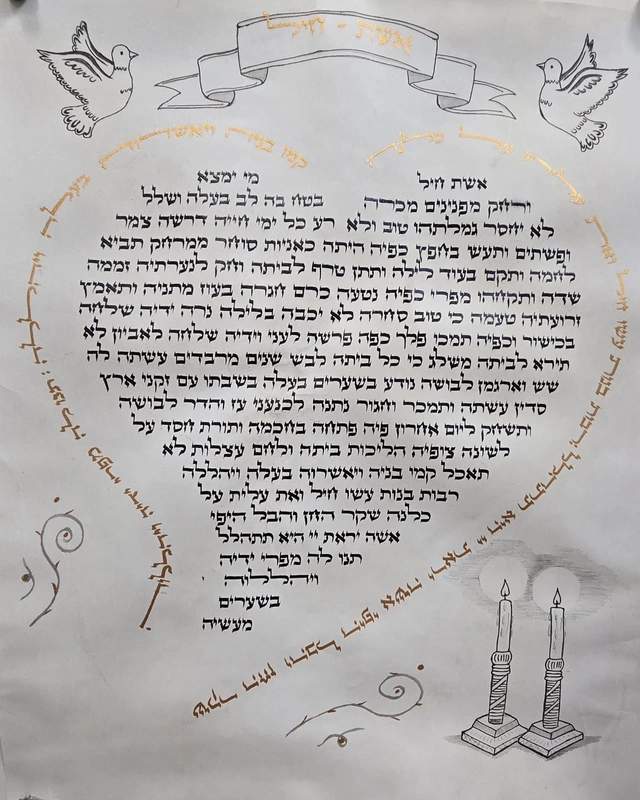 אשת - חיל
קמו בניה ויאשרוה בעלה ויהללה : תנו לה מפרי ידיה ויהללוה
אשת חיל מי ימצא
ורחק מפנינים מכרה בטח בה לב בעלה ושלל
לא יחסר גמלתהו טוב ולא רע כל ימי חייה דרשה צמר
ופשתים ותעש בחפץ כפיה היתה כאניות סוחר ממרחק תביא
לחמה ותקם בעוד לילה ותתן טרף לביתה וחק לנערתיה זממה
שדה ותקחהו מפרי כפיה נטעה כרם חגרה בעוז מתניה ותאמץ
זרועתיה טעמה כי טוב סחרה לא יכבה בלילה נרה ידיה שלחה
בכישור וכפיה תמכו פלך כפה פרשה לעני וידיה שלחה לאביון לא
תירא לביתה משלג כי כל ביתה לבש שנים מרבדים עשתה לה
שש וארגמן לבושה נודע בשערים בעלה בשבתו עם זקני ארץ
סדין עשתה ותמכר וחגור נתנה לכנעני עז והדר לבושה
ותשחק ליום אחרון פיה פתחה בחכמה ותורת חסד על
לשונה צופיה הליכות ביתה ולחם עצלות לא
תאכל קמו בניה ויאשרוה בעלה ויהללה
רבות בנות עשו חיל ואת עלית על
כלנה שקר החן והבל היפי
אשה יראת יי היא תתהלל
תנו לה מפרי ידיה
ויהללוה
בשערים
מעשיה
שקר החן והבל היפי אשה יראת יי היא תתהלל